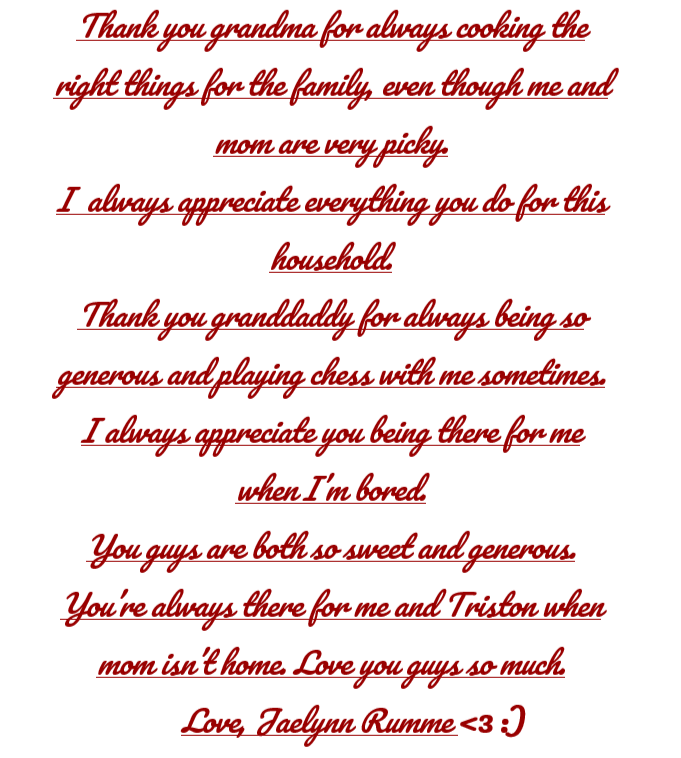 Thank you grandma for always cooking the
right things for the family, even though me and
mom are very picky.
I always appreciate everything you do for this
household.
Thank you granddaddy for always being so
generous and playing chess with me sometimes.
I always appreciate you being there for me
when I'm bored.
You guys are both so sweet and generous.
You're always there for me and Triston when
mom isn't home. Love you guys so much.
Love, Jaelynn Rumme <3 :)